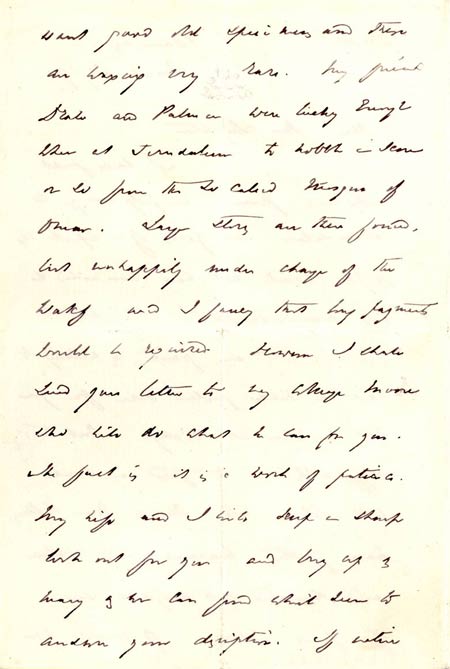 want good old specimens and these
are waxing very rare. My friends
Drake and Palmer were lucky enough
when at Jerusalem to nobble a score
or so from the so called Mosque of
Omar. Large stores are there found,
but unhappily under charge of the
Wakf and I fancy that long payments
would be required. However I shall
send your letter to my colleague Moore
who will do what he can for you.
The fact is it is a work of patience.
My wife and I will keep a sharp
look out for you and buy up as
many as we can find what seem to
answer your description. If native